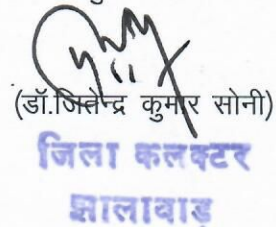 (डॉ.जितेन्द्र कुमार सोनी)
जिला कलक्टर
झालावाड़